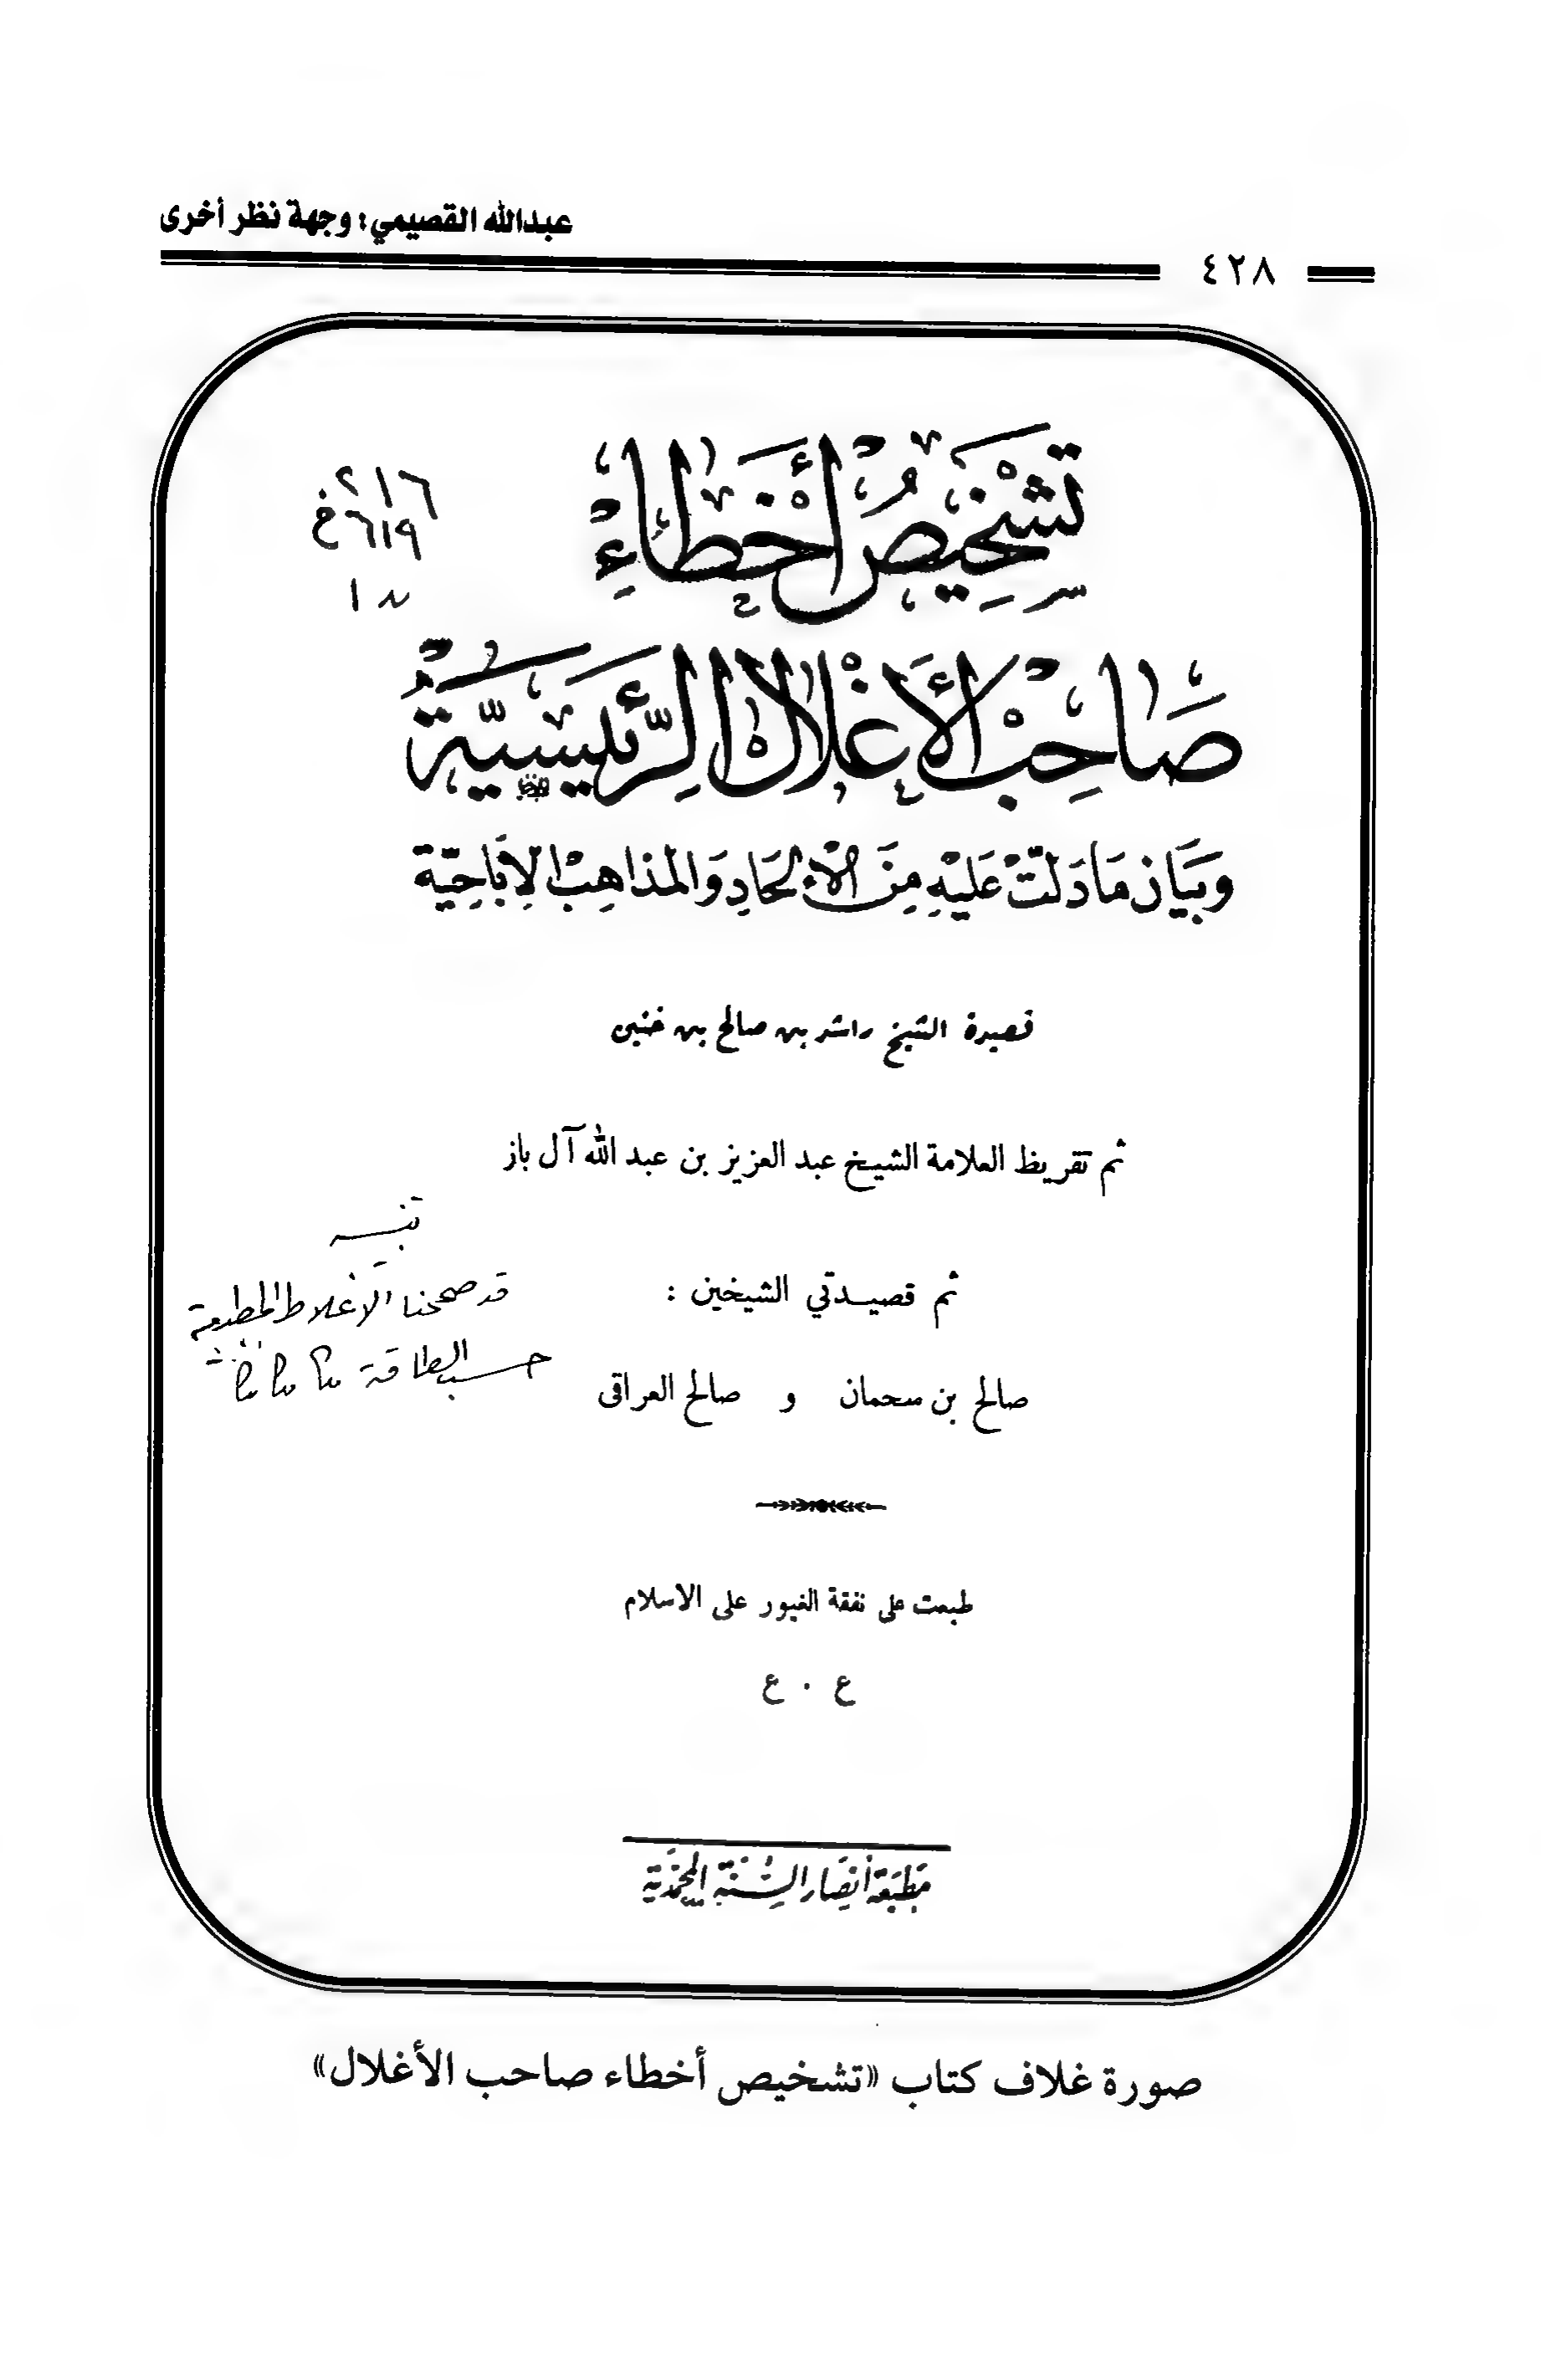 عبدالله القصيمي: وجهة نظر أخرى
٤٢٨
تَشْخِيصُ أَخْطَاءِ
صَاحِبِ الأَغْلَالِ الرَّئِيسِيَّةِ
وَبَيَانِ مَا دَلَّتْ عَلَيْهِ مِنَ الإِلْحَادِ وَالمَذَاهِبِ الإِبَاحِيَّةِ
قصيدة الشيخ راشد بن صالح بن خنين
ثم تقريظ العلامة الشيخ عبد العزيز بن عبد الله آل باز
تنبيه
ثم قصيدتي الشيخين :
قد صححنا الاغلاط المطبعية
حسب الطاقة
صالح بن سحمان و صالح العراقى
طبعت على نفقة الغيور على الاسلام
ع ٠ ع
مطبعة أنصار السنة المحمدية
صورة غلاف كتاب «تشخيص أخطاء صاحب الأغلال»